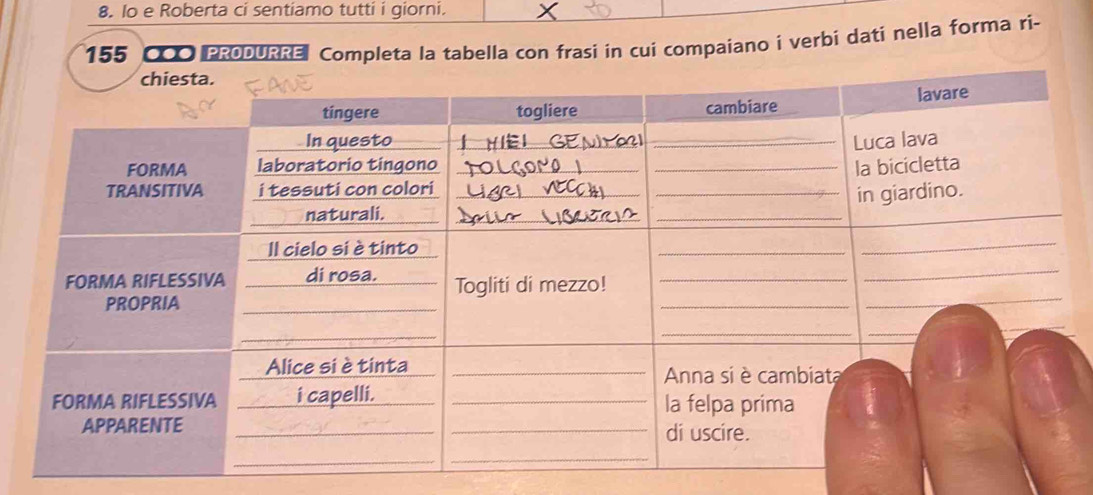 8. Io e Roberta ci sentiamo tutti i giorni. X
155 PRODURRE Completa la tabella con frasi in cui compaiano i verbi dati nella forma ri-
chiesta.
tingere togliere cambiare lavare
FORMA TRANSITIVA
In questo
laboratorio tingono
i tessuti con colori
naturali.
I MIEI GENITORI
TOLGONO I
LIBRI VECCHI
DALLA LIBRERIA
Luca lava
la bicicletta
in giardino.
FORMA RIFLESSIVA
PROPRIA
Il cielo si è tinto
di rosa.
Togliti di mezzo!
FORMA RIFLESSIVA
APPARENTE
Alice si è tinta
i capelli.
Anna si è cambiata
la felpa prima
di uscire.